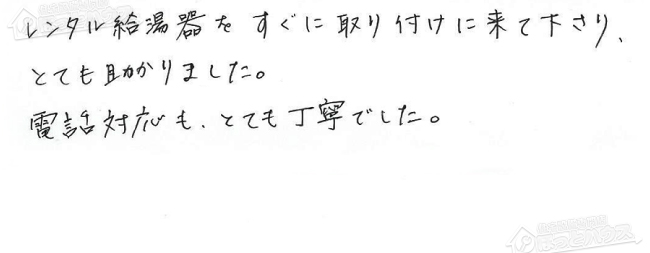 レンタル給湯器をすぐに取り付けに来て下さり、
とても助かりました。
電話対応も、とても丁寧でした。